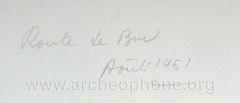 Route de Bue
Août 1951
www.archeophone.org